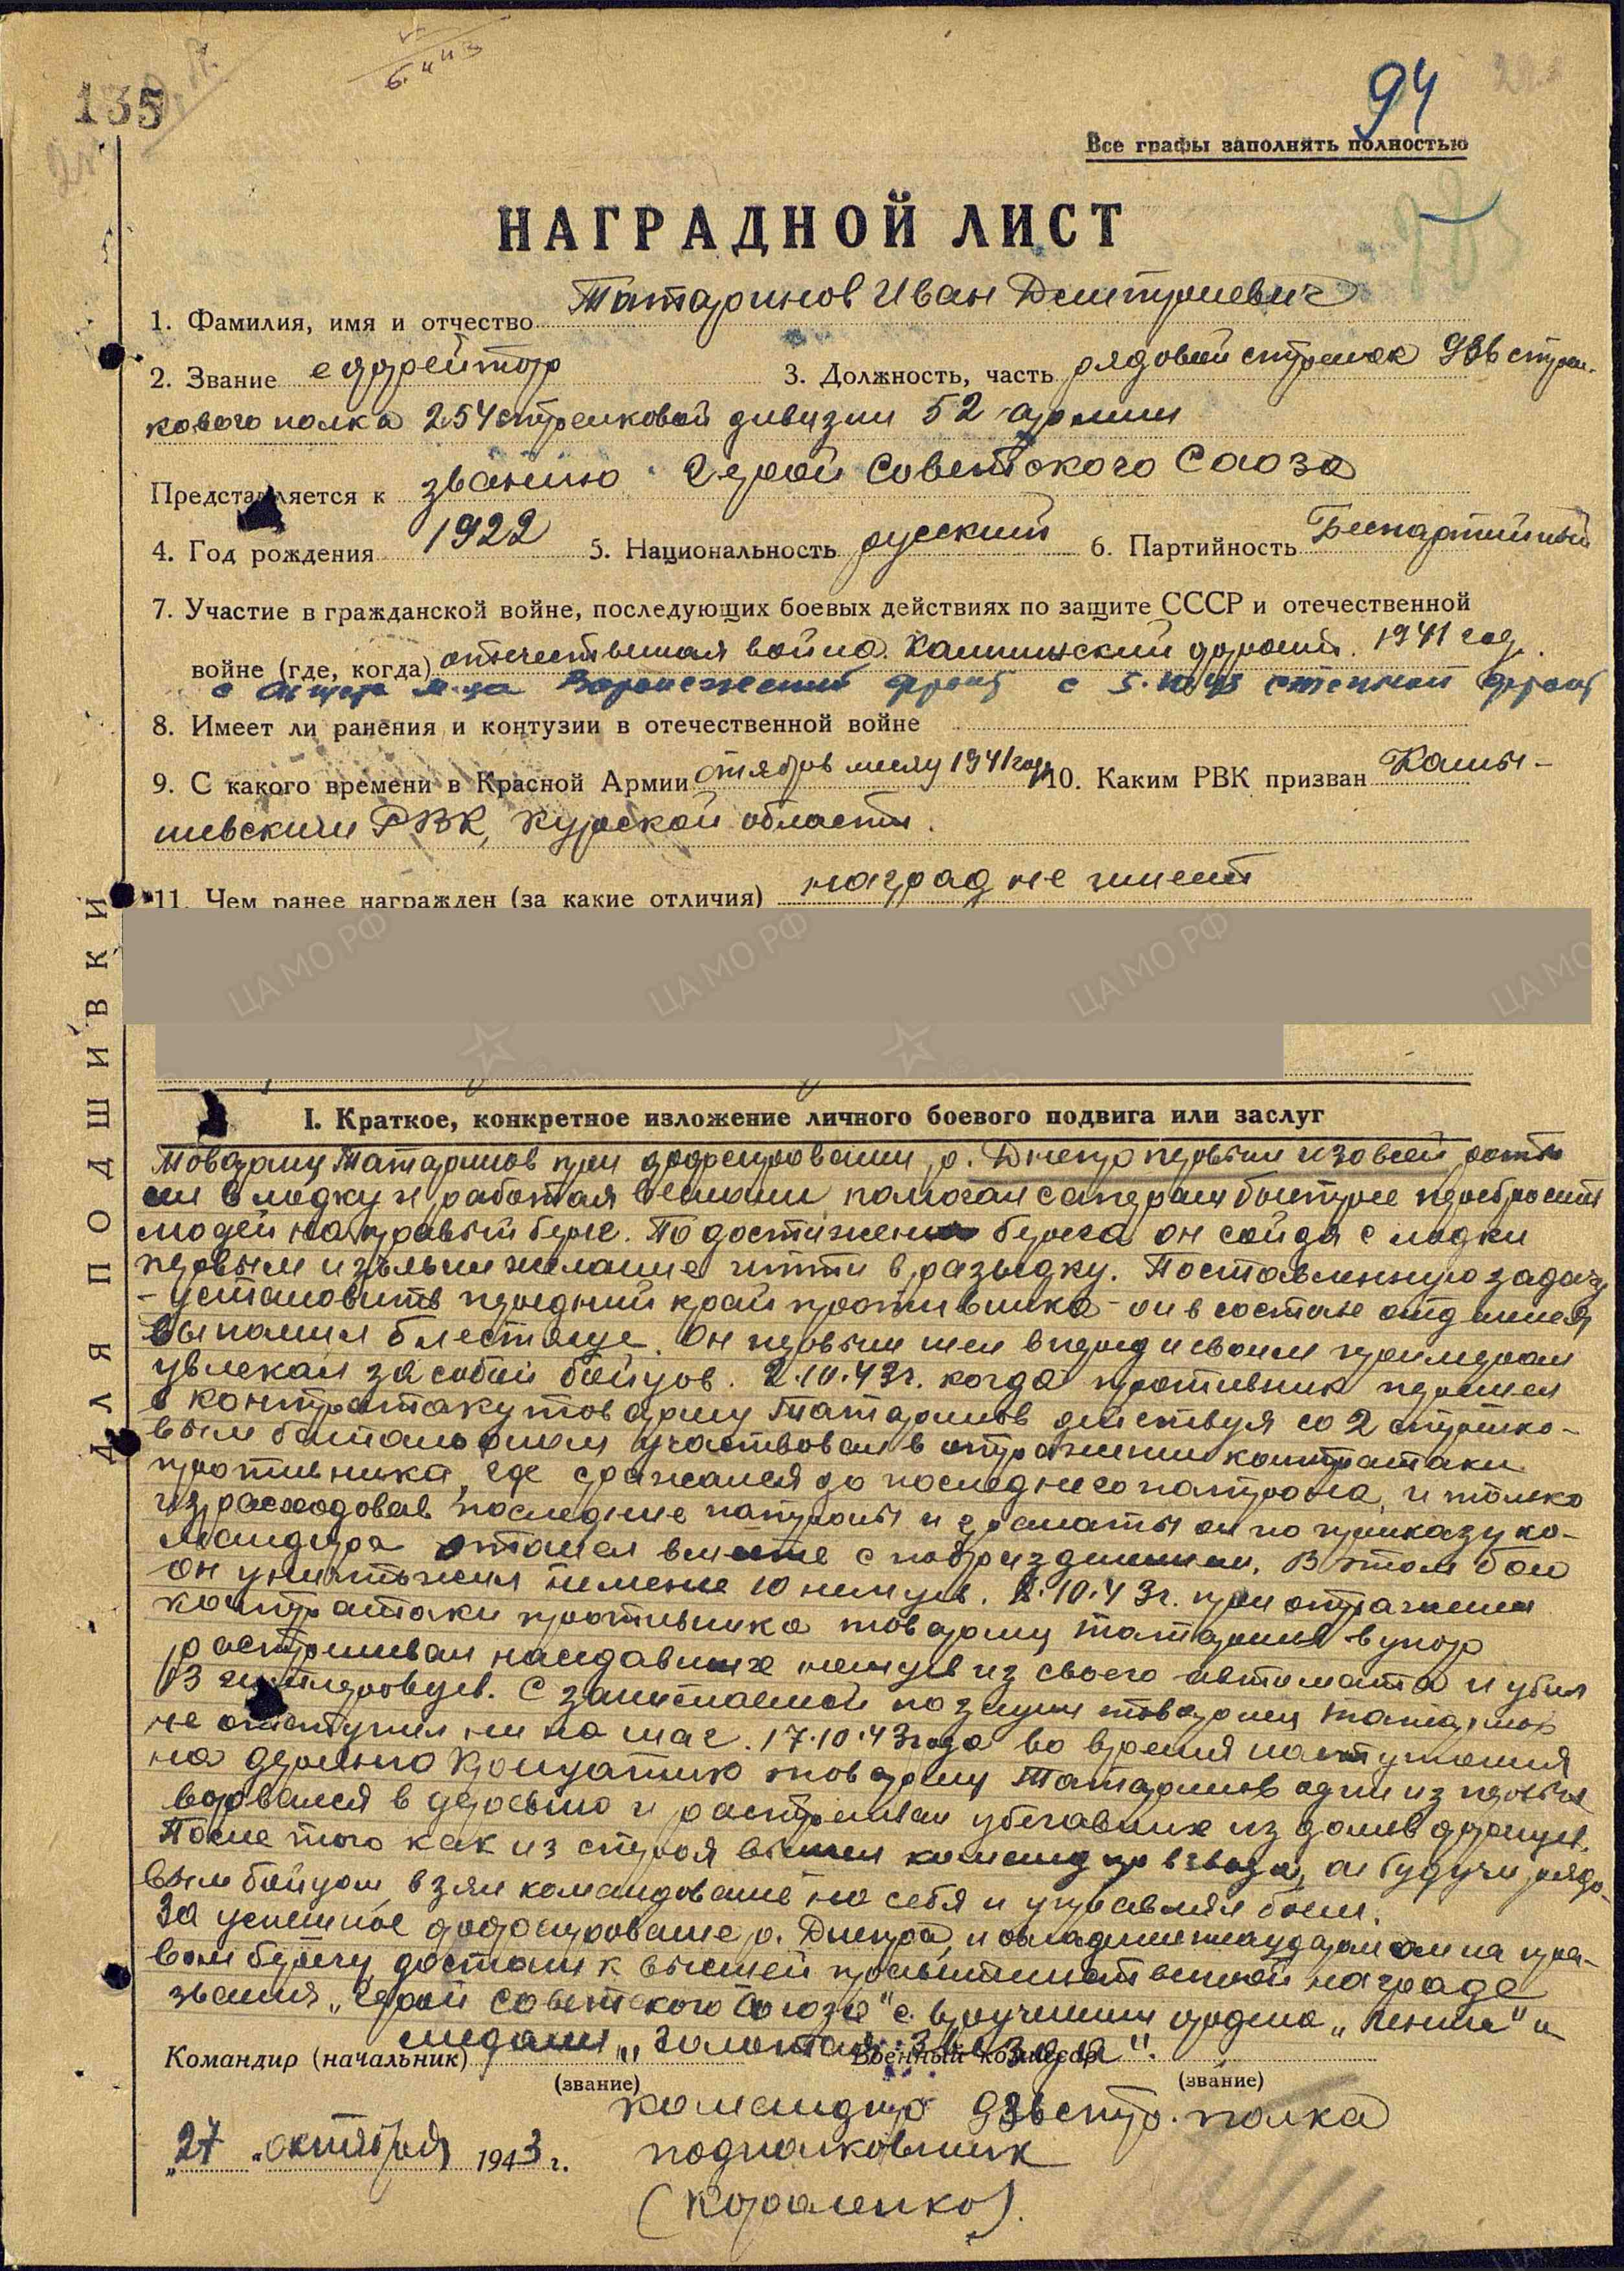 135
94
Все графы заполнять полностью
НАГРАДНОЙ ЛИСТ
1. Фамилия, имя и отчество Татаринов Иван Дмитриевич
2. Звание ефрейтор 3. Должность, часть рядовой стрелок 936 стрел-
кового полка 254 стрелковой дивизии 52 армии
Представляется к званию Герой Советского Союза
4. Год рождения 1922 5. Национальность русский 6. Партийность Беспартийный
7. Участие в гражданской войне, последующих боевых действиях по защите СССР и отечественной
войне (где, когда) отечественная война. Калининский фронт. 1941 год.
с м-ца Воронежский фронт с степной фронт
8. Имеет ли ранения и контузии в отечественной войне
9. С какого времени в Красной Армии 1941 года 10. Каким РВК призван
РВК, Курской области.
11. Чем ранее награжден (за какие отличия) наград не имеет
ДЛЯ ПОДШИВКИ
I. Краткое, конкретное изложение личного боевого подвига или заслуг
Товарищ Татаринов при форсировании р. Днепр первым из всей роты
сел в лодку и работая веслами помогал саперам быстрее перебросить
людей на правый берег. По достижении берега он сойдя с лодки
первым изъявил желание итти в разведку. Поставленную задачу
- установить передний край противника - он в составе отделения
выполнил блестяще. Он первым шел вперед и своим примером
увлекал за собой бойцов. 2.10.43г. когда противник перешел
в контратаку товарищ Татаринов действуя со 2 стрелко-
вым батальоном участвовал в отражении контратаки
противника, где сражался до последнего патрона, и только
израсходовав последние патроны и гранаты он по приказу ко-
мандира отошел вместе с подразделением. В этом бою
он уничтожил не менее 10 немцев. 10.43г. при отражении
контратаки противника товарищ Татаринов в упор
расстреливал наседавших немцев из своего автомата и убил
13 гитлеровцев. С занимаемой позиции товарищ Татаринов
не отступил ни на шаг. 17.10.43 года во время наступления
на деревню товарищ Татаринов один из первых
ворвался в деревню и расстреливал убегавших из домов фрицев.
После того как из строя вышел командир взвода, он будучи рядо-
вым бойцом взял командование на себя и управлял боем.
За успешное форсирование р. Днепра, и овладение плацдармом на пра-
вом берегу достоин к высшей правительственной награде
звания „Герой Советского Союза" с вручением ордена „Ленина" и
медали „Золотая Звезда".
Командир (начальник) Военный комиссар
(звание) (звание)
командир 936 стр. полка
„27" октября 1943 г. подполковник
(Короленко).
ЦА МО РФ ЦА МО РФ ЦА МО РФ ЦА МО